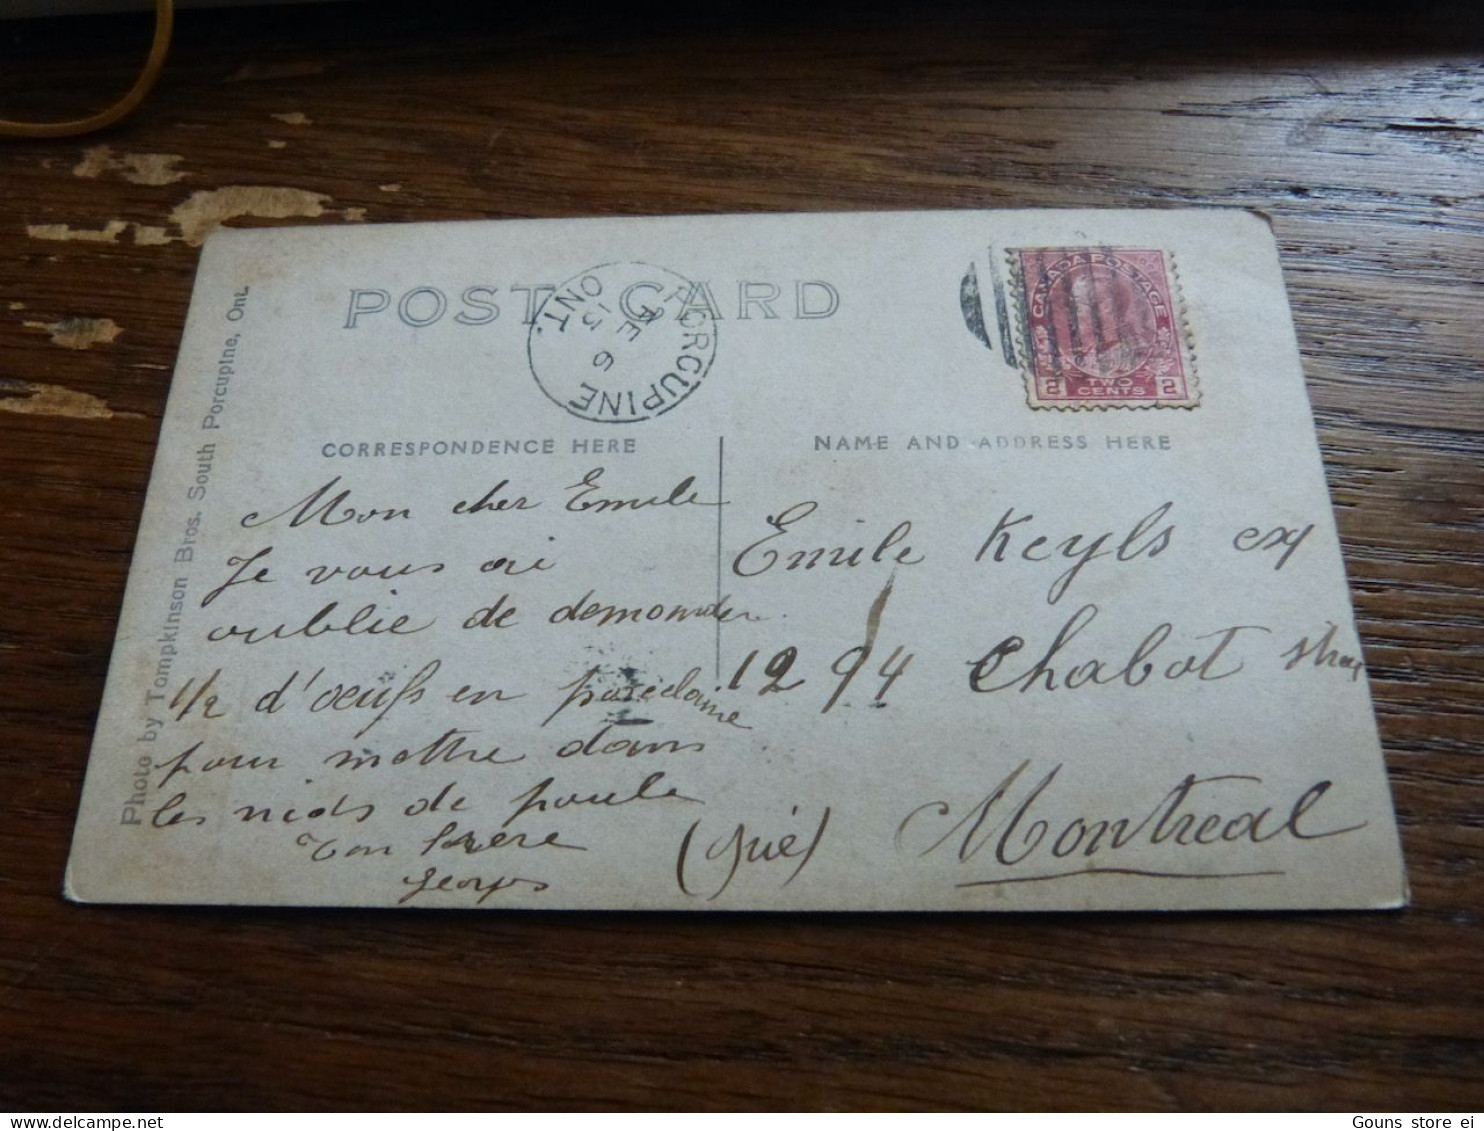 POST CARD
PORCUPINE
6
13
ONT.
CANADA POSTAGE
2 TWO CENTS 2
Photo by Tompkinson Bros. South Porcupine, Ont.
CORRESPONDENCE HERE
NAME AND ADDRESS HERE
Mon cher Emile
Je vous ai
oublie de demander
1/2 d'oeufs en porcelaine
pour mettre dans
les nids de poule
Ton frère
Georges
Emile Keyls
1294 Chabot
Montreal
Gouns store ei